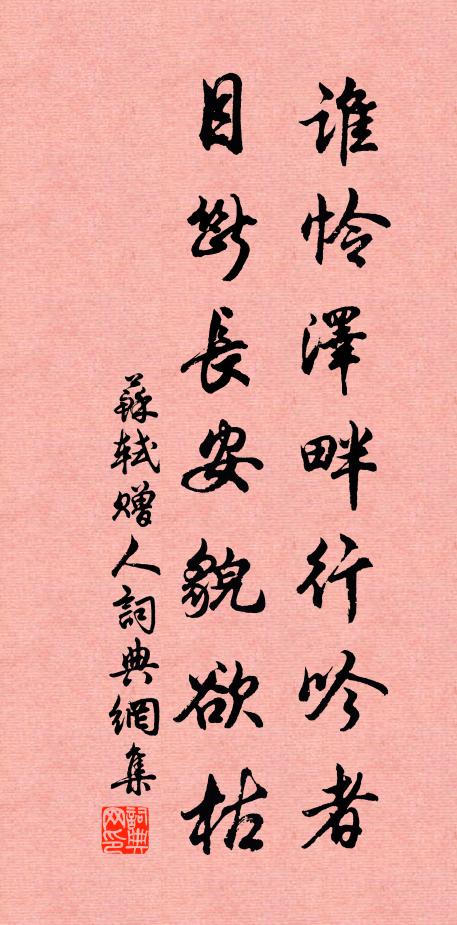 誰憐澤畔行吟者
目斷長安貌欲枯
蘇軾贈人詞典網集
詞典网印